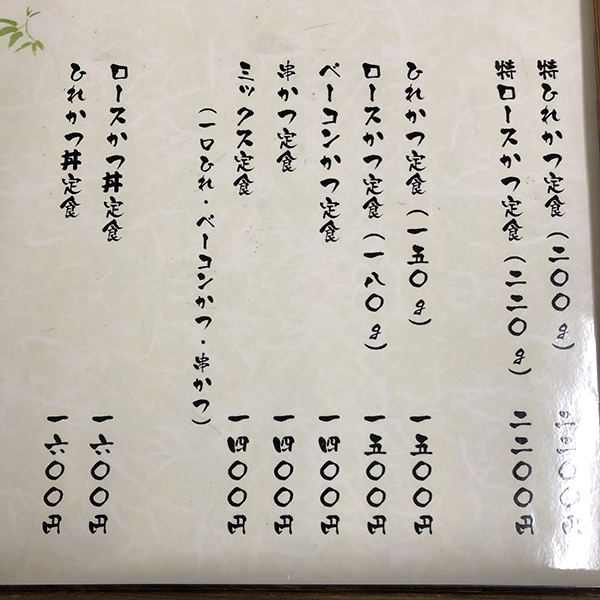 特ひれかつ定食(二〇〇g) 二二〇〇円
特ロースかつ定食(二二〇g) 二二〇〇円
ひれかつ定食(一五〇g) 一五〇〇円
ロースかつ定食(一八〇g) 一五〇〇円
ベーコンかつ定食 一四〇〇円
串かつ定食 一四〇〇円
ミックス定食 一四〇〇円
(一口ひれ・ベーコンかつ・串かつ)
ロースかつ丼定食 一六〇〇円
ひれかつ丼定食 一六〇〇円